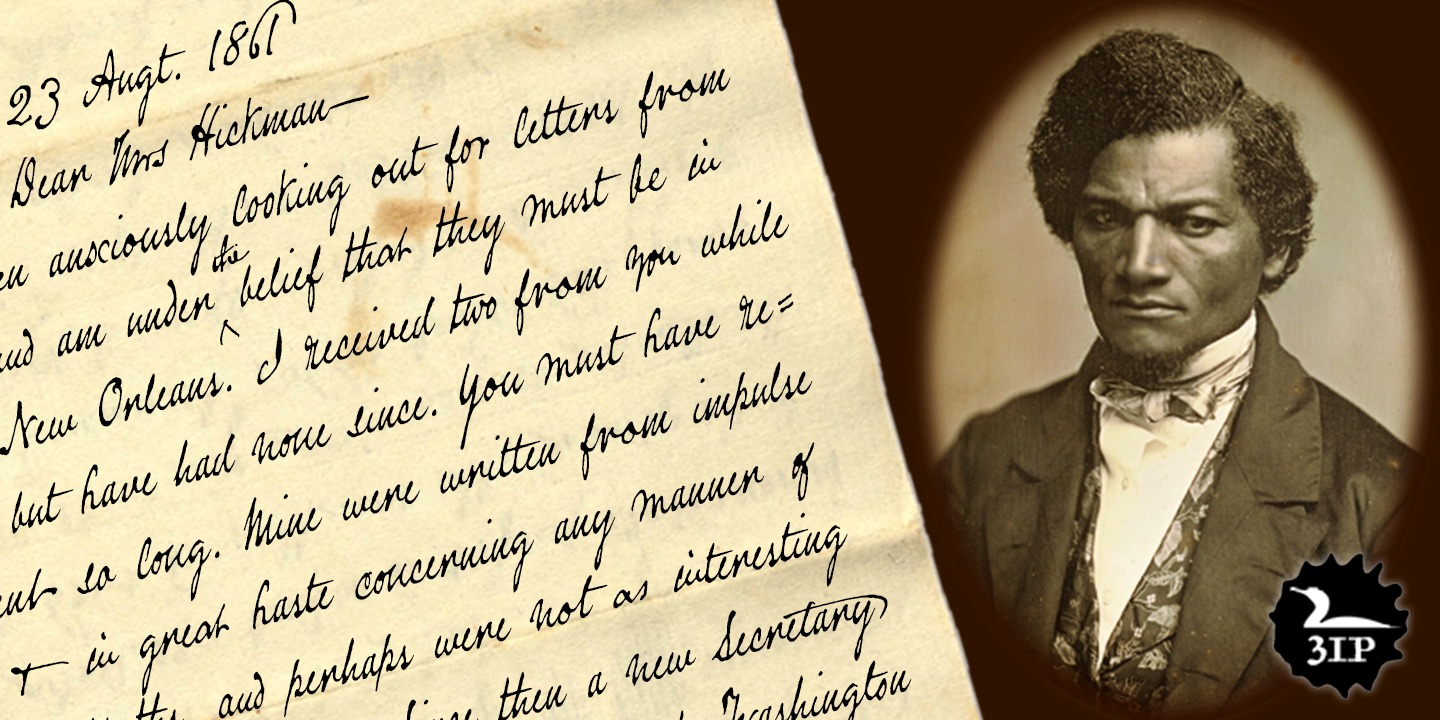 23 Augt. 1861
Dear Mrs Hickman—
en anxiously looking out for letters from
and am under the belief that they must be in
New Orleans. I received two from you while
but have had none since. You must have re=
ent so long. Mine were written from impulse
in great haste concerning any manner of
and perhaps were not as interesting
then a new Secretary
Washington
3IP